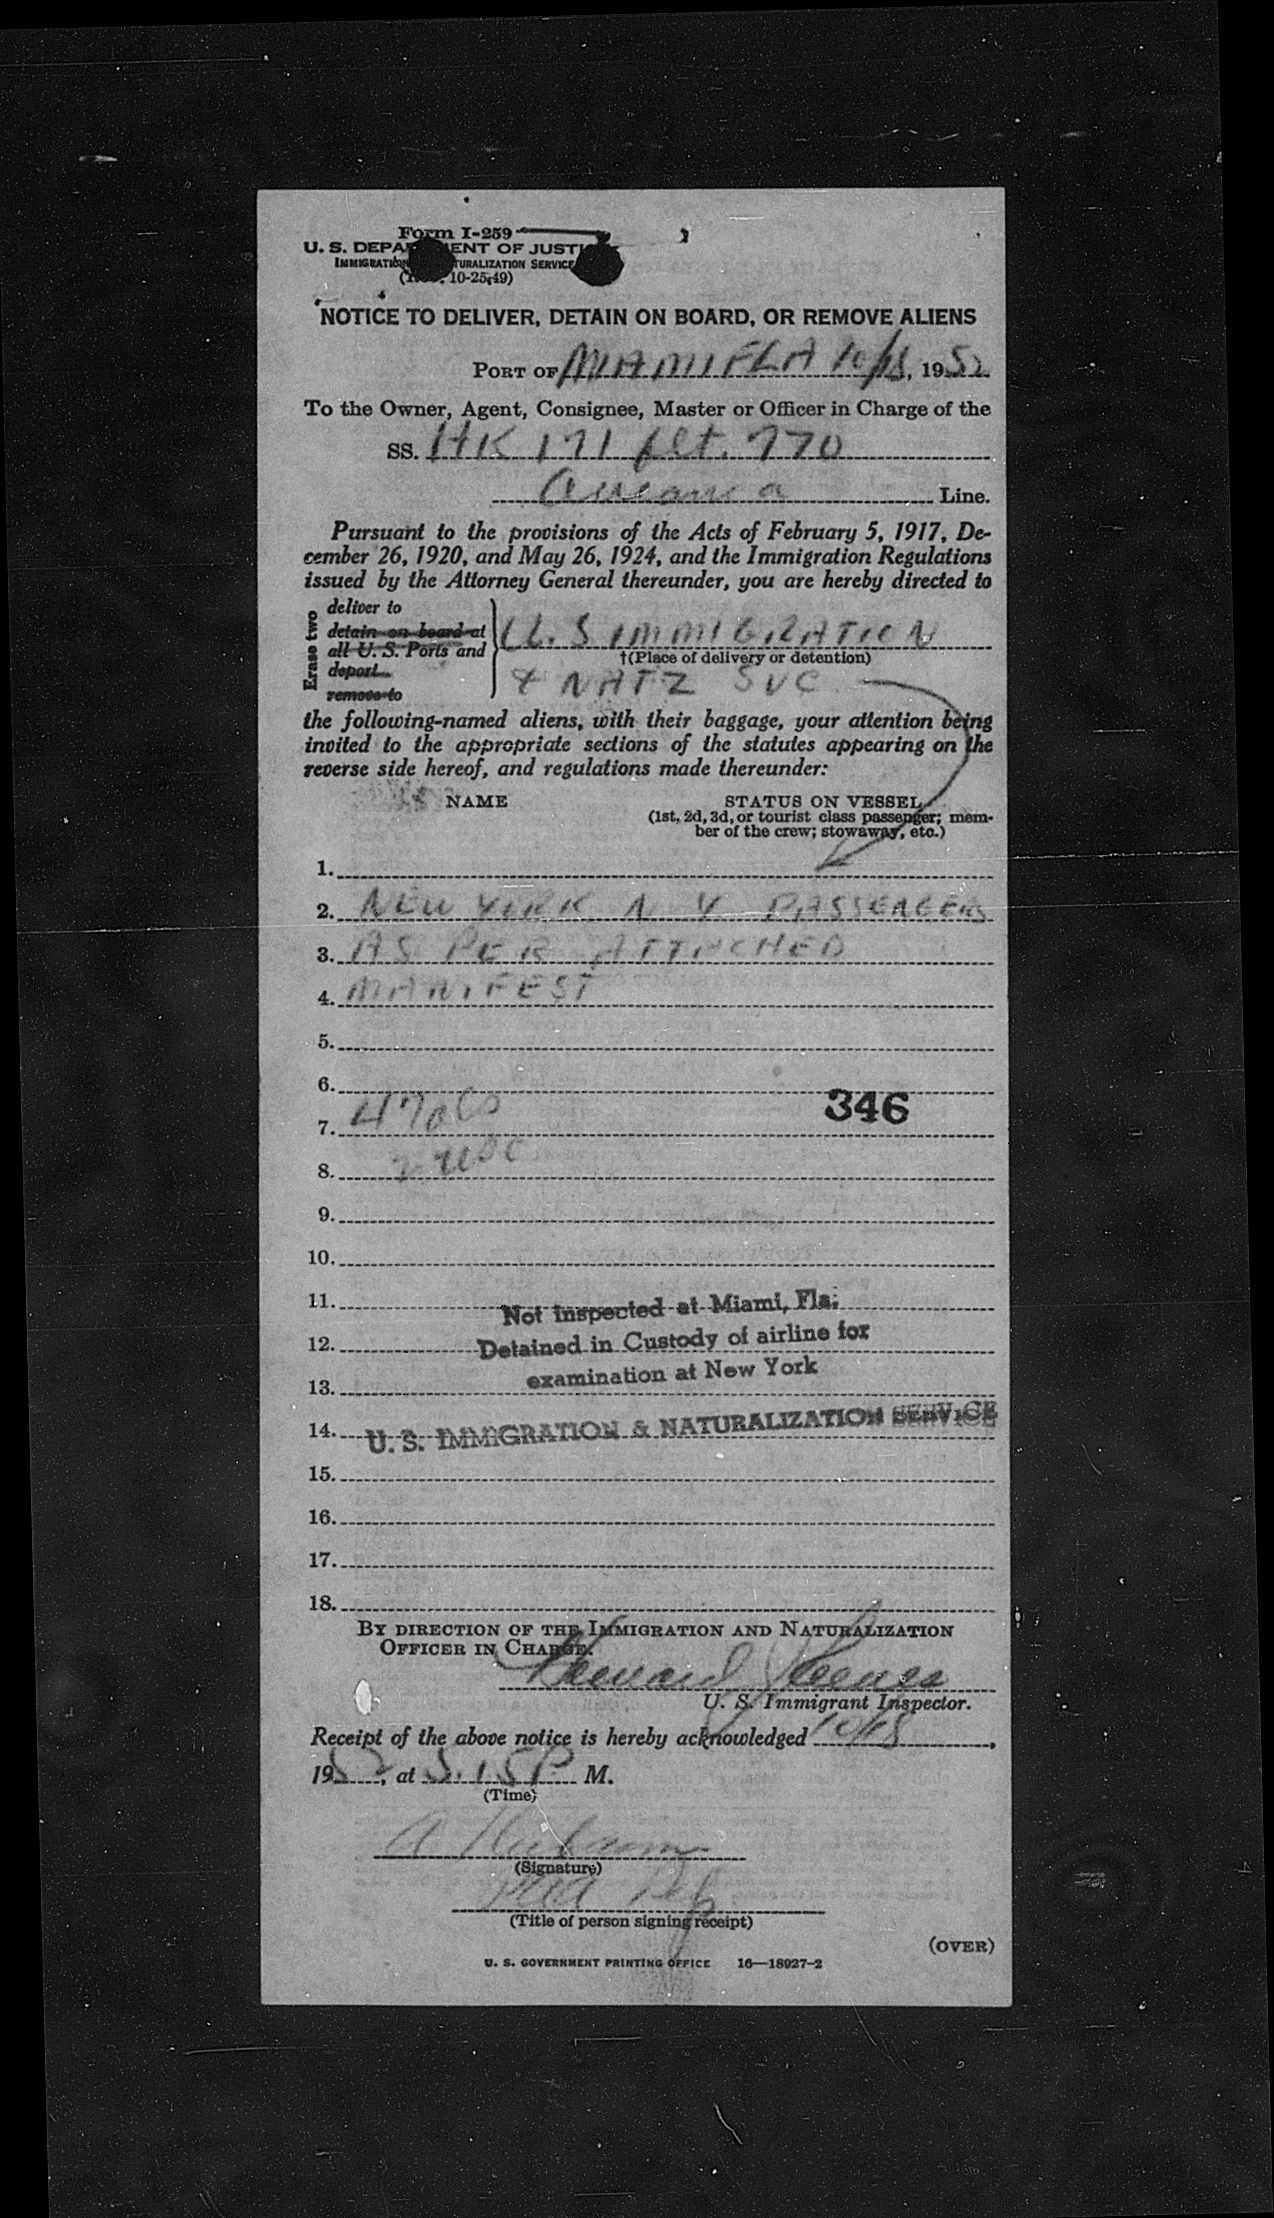 Form I-259
U. S. DEPA ENT OF JUSTI
IMMIGRATION TURALIZATION SERVICE
10-25-49)
NOTICE TO DELIVER, DETAIN ON BOARD, OR REMOVE ALIENS
PORT OF MIAMI FLA 10/18, 1952
To the Owner, Agent, Consignee, Master or Officer in Charge of the
SS. HK 171 flt. 770
Avianca Line.
Pursuant to the provisions of the Acts of February 5, 1917, De-
cember 26, 1920, and May 26, 1924, and the Immigration Regulations
issued by the Attorney General thereunder, you are hereby directed to
Erase two
deliver to
detain on board at
all U. S. Ports and
deport
remove to
U. S IMMIGRATION
†(Place of delivery or detention)
& NATZ SVC
the following-named aliens, with their baggage, your attention being
invited to the appropriate sections of the statutes appearing on the
reverse side hereof, and regulations made thereunder:
NAME STATUS ON VESSEL
(1st, 2d, 3d, or tourist class passenger; mem-
ber of the crew; stowaway, etc.)
1.
2. NEW YORK N Y PASSENGERS
3. AS PER ATTACHED
4. MANIFEST
5.
6.
346
7. 47
8. 2 USC
9.
10.
11. Not inspected at Miami, Fla.
12. Detained in Custody of airline for
13. examination at New York
14. U. S. IMMIGRATION & NATURALIZATION SERVICE
15.
16.
17.
18.
BY DIRECTION OF THE IMMIGRATION AND NATURALIZATION
OFFICER IN CHARGE.
U. S. Immigrant Inspector.
Receipt of the above notice is hereby acknowledged 10/18,
1952, at 5.15 P M.
(Time)
A
(Signature)
(Title of person signing receipt)
(OVER)
U. S. GOVERNMENT PRINTING OFFICE 16—18927-2